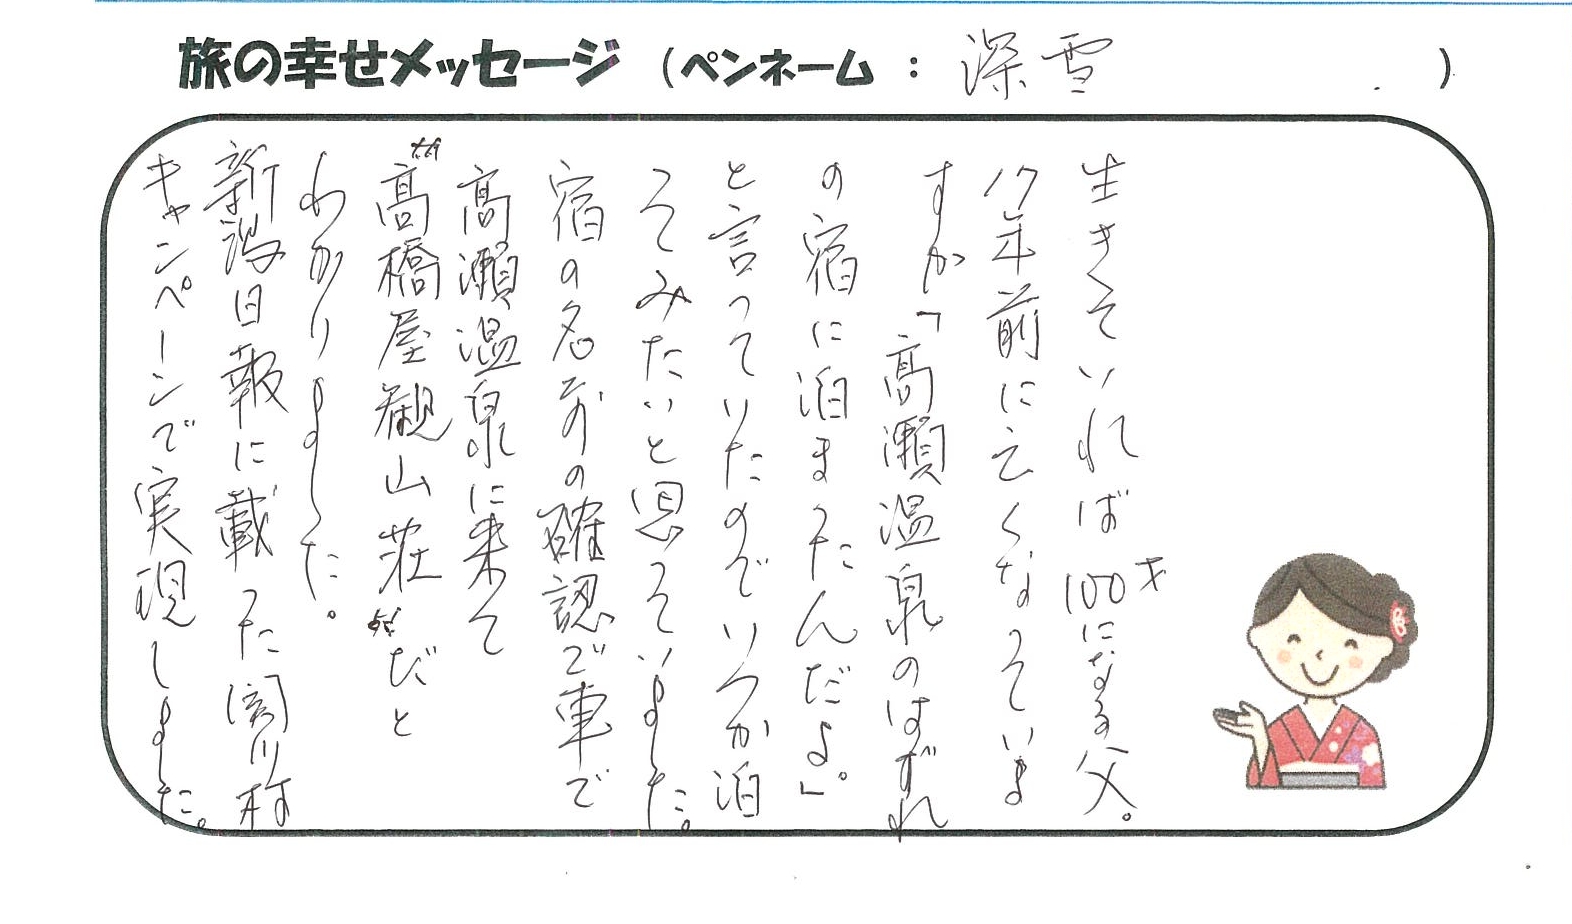 旅の幸せメッセージ（ペンネーム：深雪）
生きていれば100才になる父。
17年前に亡くなっていま
すが「高瀬温泉のはずれ
の宿に泊まったんだよ」。
と言っていたのでいつか泊
ってみたいと思っていました。
宿の名前の確認で車で
高瀬温泉に来て
〝高橋屋観山荘〟だと
わかりました。
新潟日報に載った関川村
キャンペーンで実現しました。